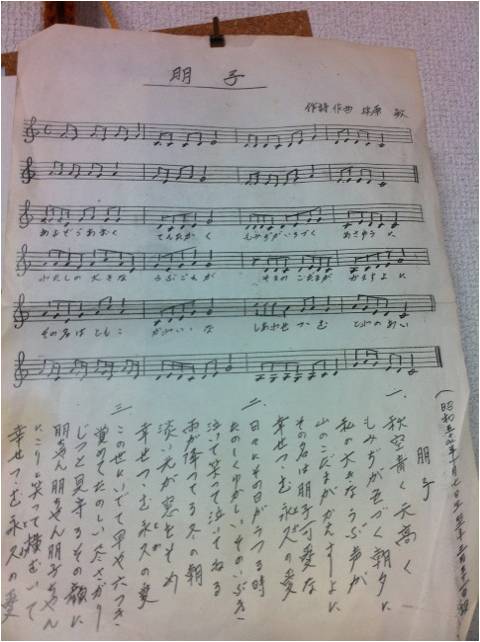 朋子
作詩 作曲
あおぞらあおく てんたかく もみぢがいろづく あさゆうに
わたしの大きな うぶごえが やまの こだまが かえすよに
その名はともこ かわいいな しあわせつゝむ とわのあい
朋子
一、秋空青く 天高く
もみぢが色づく朝夕に
私の大きなうぶ声が
山のこだまがかえすよに
その名は朋子可愛な
幸せつゝむ永久の愛
二、日々にその日がうつる時
たのしくゆかしいそのいぶき
泣いて笑って泣いてねる
雨が降ってる冬の朝
淡い光が窓をそめ
幸せつゝむ永久の愛
三、この世にいでて早や六つき
覚めてたのしい
じっと見る その顔に
朋ちゃん朋ちゃん朋子ちゃん
にこりと笑って横むいて
幸せつゝむ永久の愛